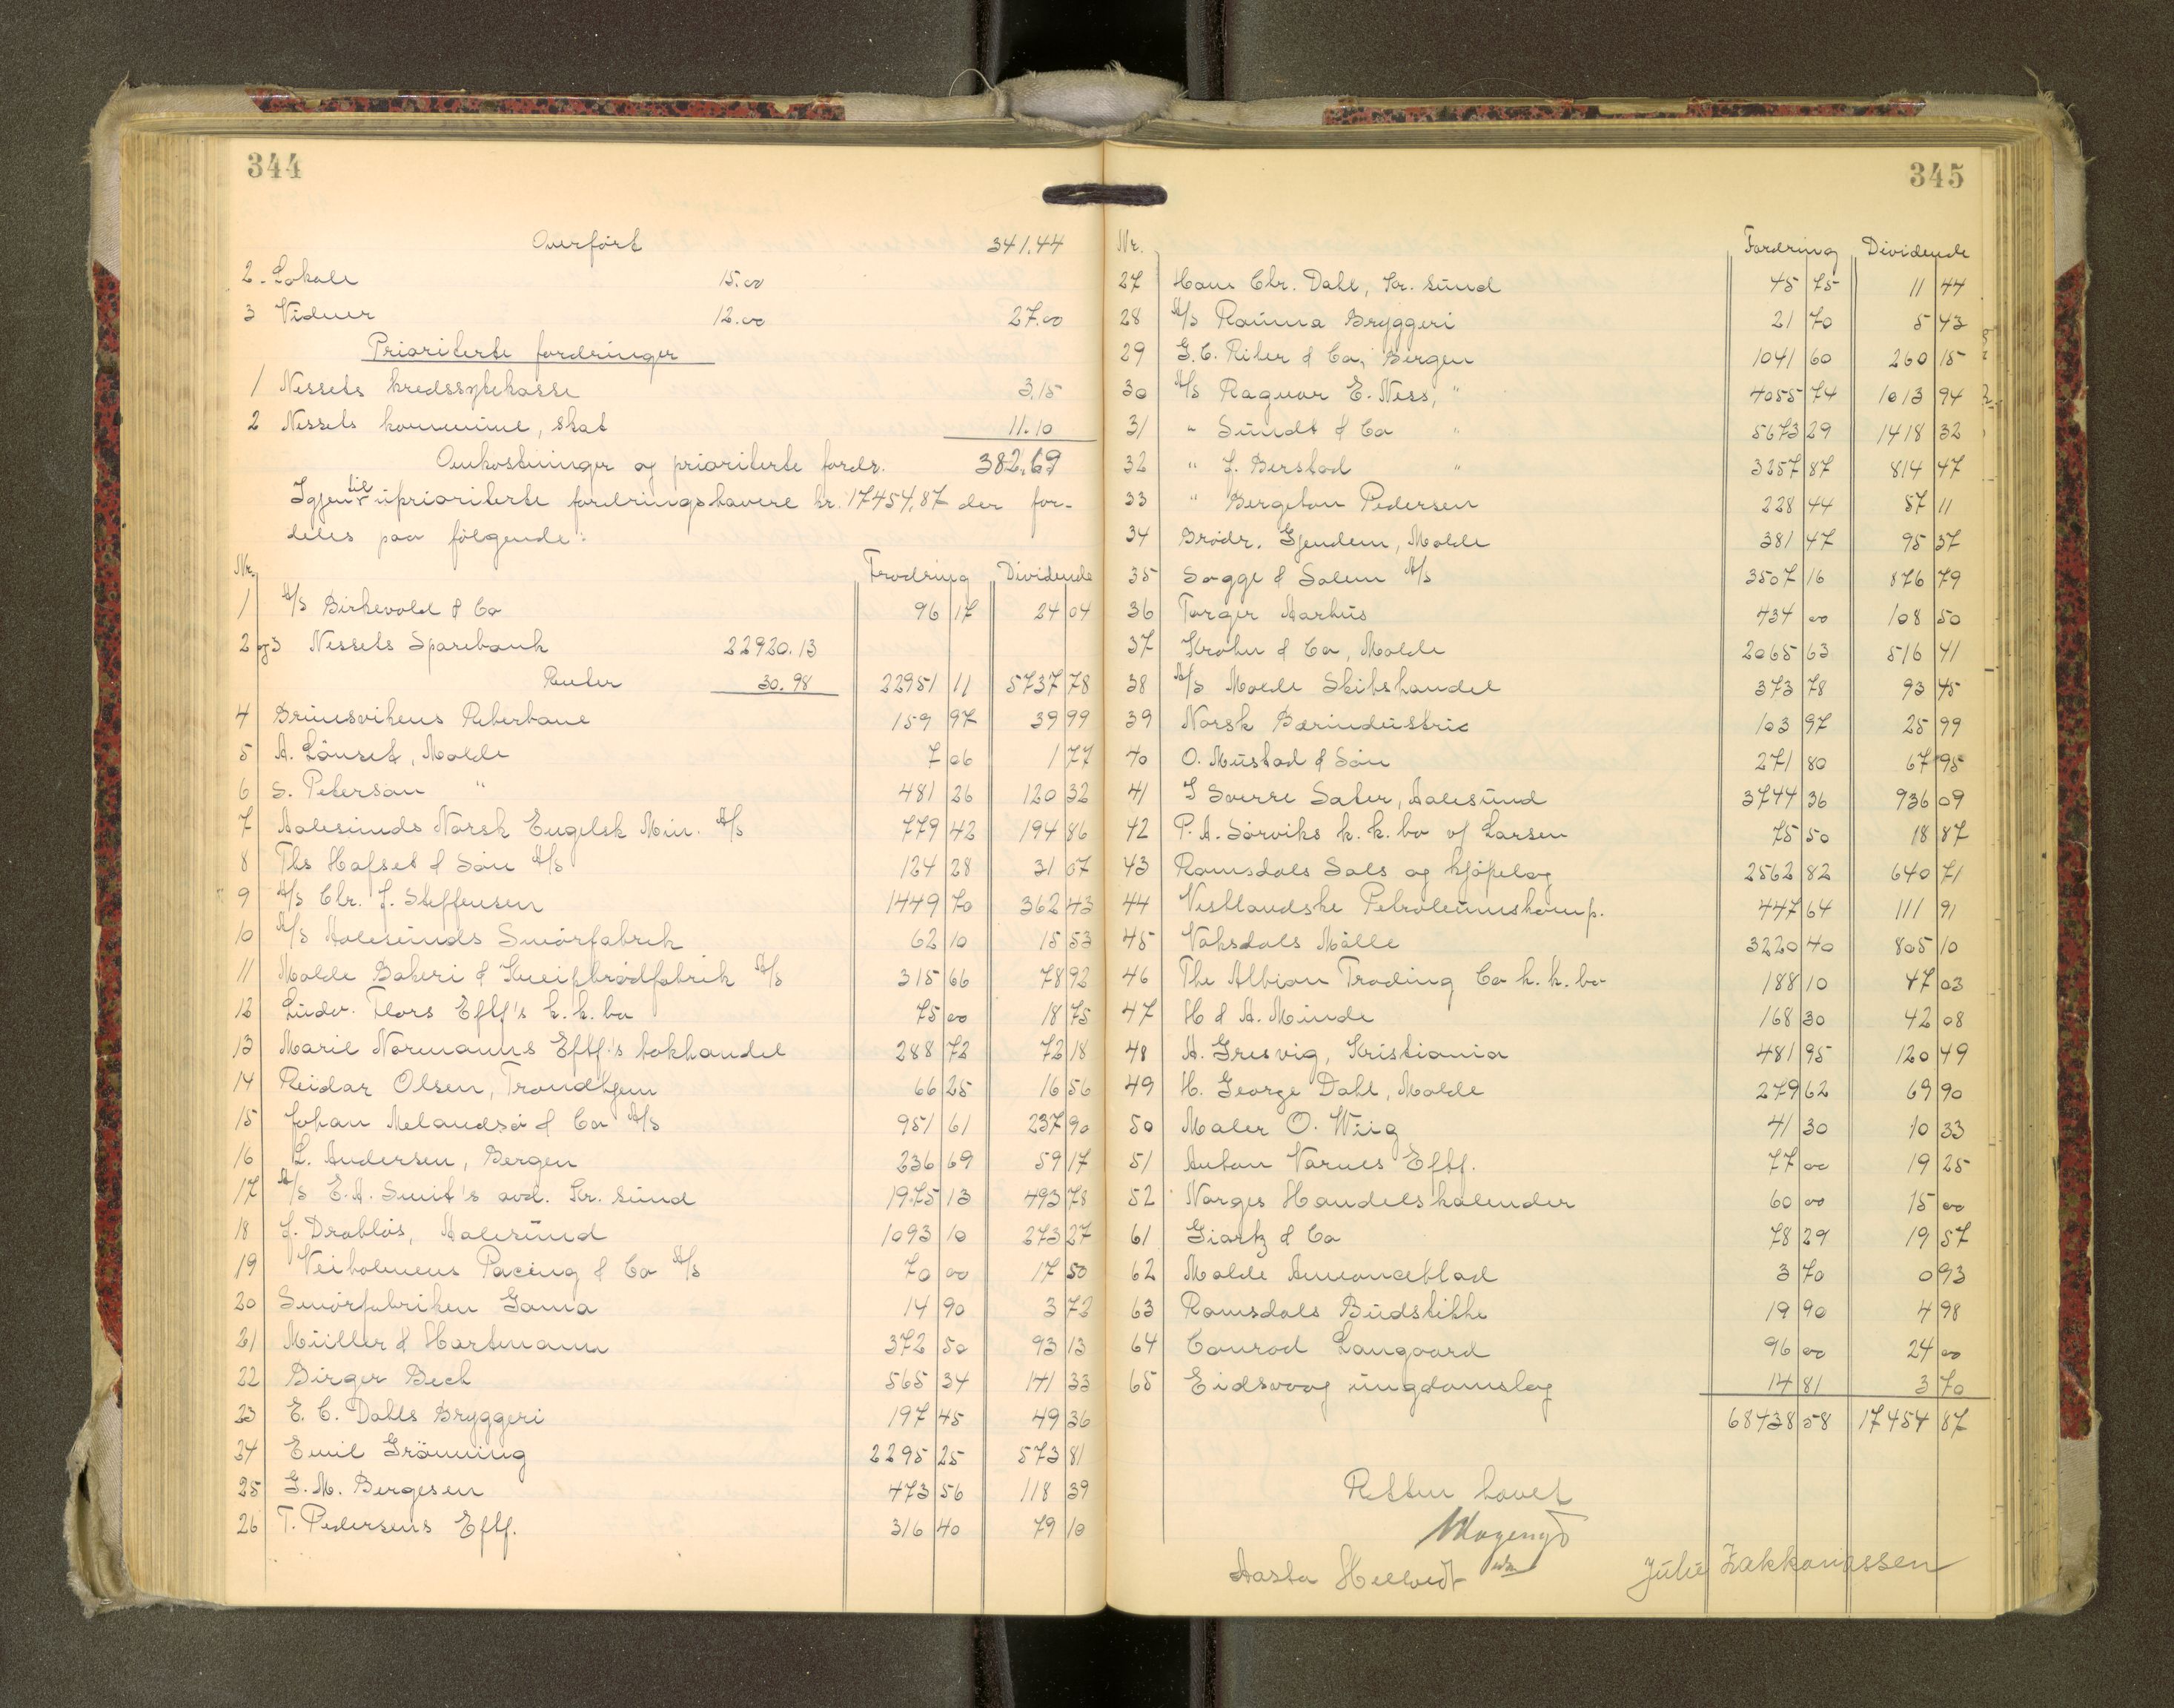 344
Overført 341.44
2. Lokale 15.00
3 Vidner 12.00 27.00
Prioriterte fordringer
1 Nessets kredssykekasse 3.15
2 Nessets kommune, skat 11.10
Omkostninger og prioriterte fordr. 382.69
Igjen til uprioriterte fordringshavere kr. 17454,87 der for-
deles paa følgende:
Nr. Frodring Dividende
1 A/S Birkevold & Co 96 17 24 04
2 og 3 Nessets Sparebank 22920.13
Renter 30.98 22951 11 5737 78
4 Bruusvikens Reberbane 159 97 39 99
5 A. Lönset, Molde 7 06 1 77
6 S. Peterson " 481 26 120 32
7 Aalesunds Norsk Engelsk Min. A/S 779 42 194 86
8 Ths Hafset & Sön A/S 124 28 31 07
9 A/S Chr. J. Steffensen 1449 70 362 43
10 A/S Aalesunds Smörfabrik 62 10 15 53
11 Molde Bakeri & Kneipbrödfabrik A/S 315 66 78 92
12 Ludv. Flors Eftf's k.k.bo 75 00 18 75
13 Marie Normanns Eftf.'s bokhandel 288 72 72 18
14 Reidar Olsen, Trondhjem 66 25 16 56
15 Johan Melandsö & Co A/S 951 61 237 90
16 L. Andersen, Bergen 236 69 59 17
17 A/S E.A. Smit's avd. Kr. sund 1975 13 493 78
18 J. Drabløs, Aalesund 1093 10 273 27
19 Veiholmens Pacing & Co A/S 70 00 17 50
20 Smörfabriken Gama 14 90 3 72
21 Müller & Hartmann 372 50 93 13
22 Birger Bech 565 34 141 33
23 E. C. Dahls Bryggeri 197 45 49 36
24 Emil Grönning 2295 25 573 81
25 G. M. Bergesen 473 56 118 39
26 T. Pedersens Eftf. 316 40 79 10
345
Nr. Fordring Dividende
27 Hans Chr. Dahl, Kr. sund 45 75 11 44
28 A/S Rauma Bryggeri 21 70 5 43
29 G. C. Riber & Co, Bergen 1041 60 260 15
30 A/S Ragnar E. Ness, " 4055 74 1013 94
31 " Sundt & Co " 5673 29 1418 32
32 " J. Berstad " 3257 87 814 47
33 " Bergeton Pedersen 228 44 57 11
34 Brödr. Gjendem, Molde 381 47 95 37
35 Sogge & Solem A/S 3507 16 876 79
36 Torger Aarhus 434 00 108 50
37 Krohn & Co, Molde 2065 63 516 41
38 A/S Molde Skibshandel 373 78 93 45
39 Norsk Bærindustrie 103 97 25 99
40 O. Mustad & Sön 271 80 67 95
41 I Sverre Sater, Aalesund 3744 36 936 09
42 P. A. Sörviks k.k.bo v/ Larsen 75 50 18 87
43 Romsdals Sals og kjöpelag 2562 82 640 71
44 Vestlandske Petroleumskomp. 447 64 111 91
45 Vaksdals Mölle 3220 40 805 10
46 The Albion Trading Co k.k.bo 188 10 47 03
47 H & A. Minde 168 30 42 08
48 A. Gresvig, Kristiania 481 95 120 49
49 H. George Dahl, Molde 279 62 69 90
50 Maler O. Wiig 41 30 10 33
51 Anton Varnes Eftf. 77 00 19 25
52 Norges Handelskalender 60 00 15 00
61 Giartz & Co 78 29 19 57
62 Molde Annonceblad 3 70 0 93
63 Romsdals Budstikke 19 90 4 98
64 Conrad Langaard 96 00 24 00
65 Eidsvaag ungdomslag 14 81 3 70
68438 58 17454 87
Retten hævet
Aasta Hellvedt Julie Zakkariassen